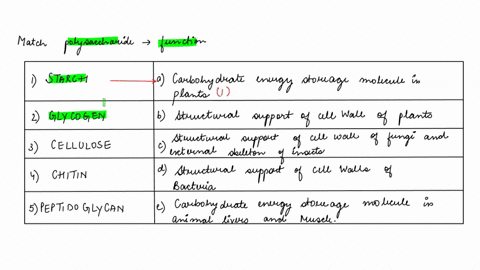 Match polysaccharide → function
1) STARCH
a) Carbohydrate energy storage molecule in
plants (1)
2) GLYCOGEN
b) Structural support of cell wall of plants
3) CELLULOSE
c) Structural support of cell wall of fungi and
external skeleton of insects
4) CHITIN
d) Structural support of cell walls of
Bacteria
5) PEPTIDOGLYCAN
e) Carbohydrate energy storage molecule in
animal livers and muscle.